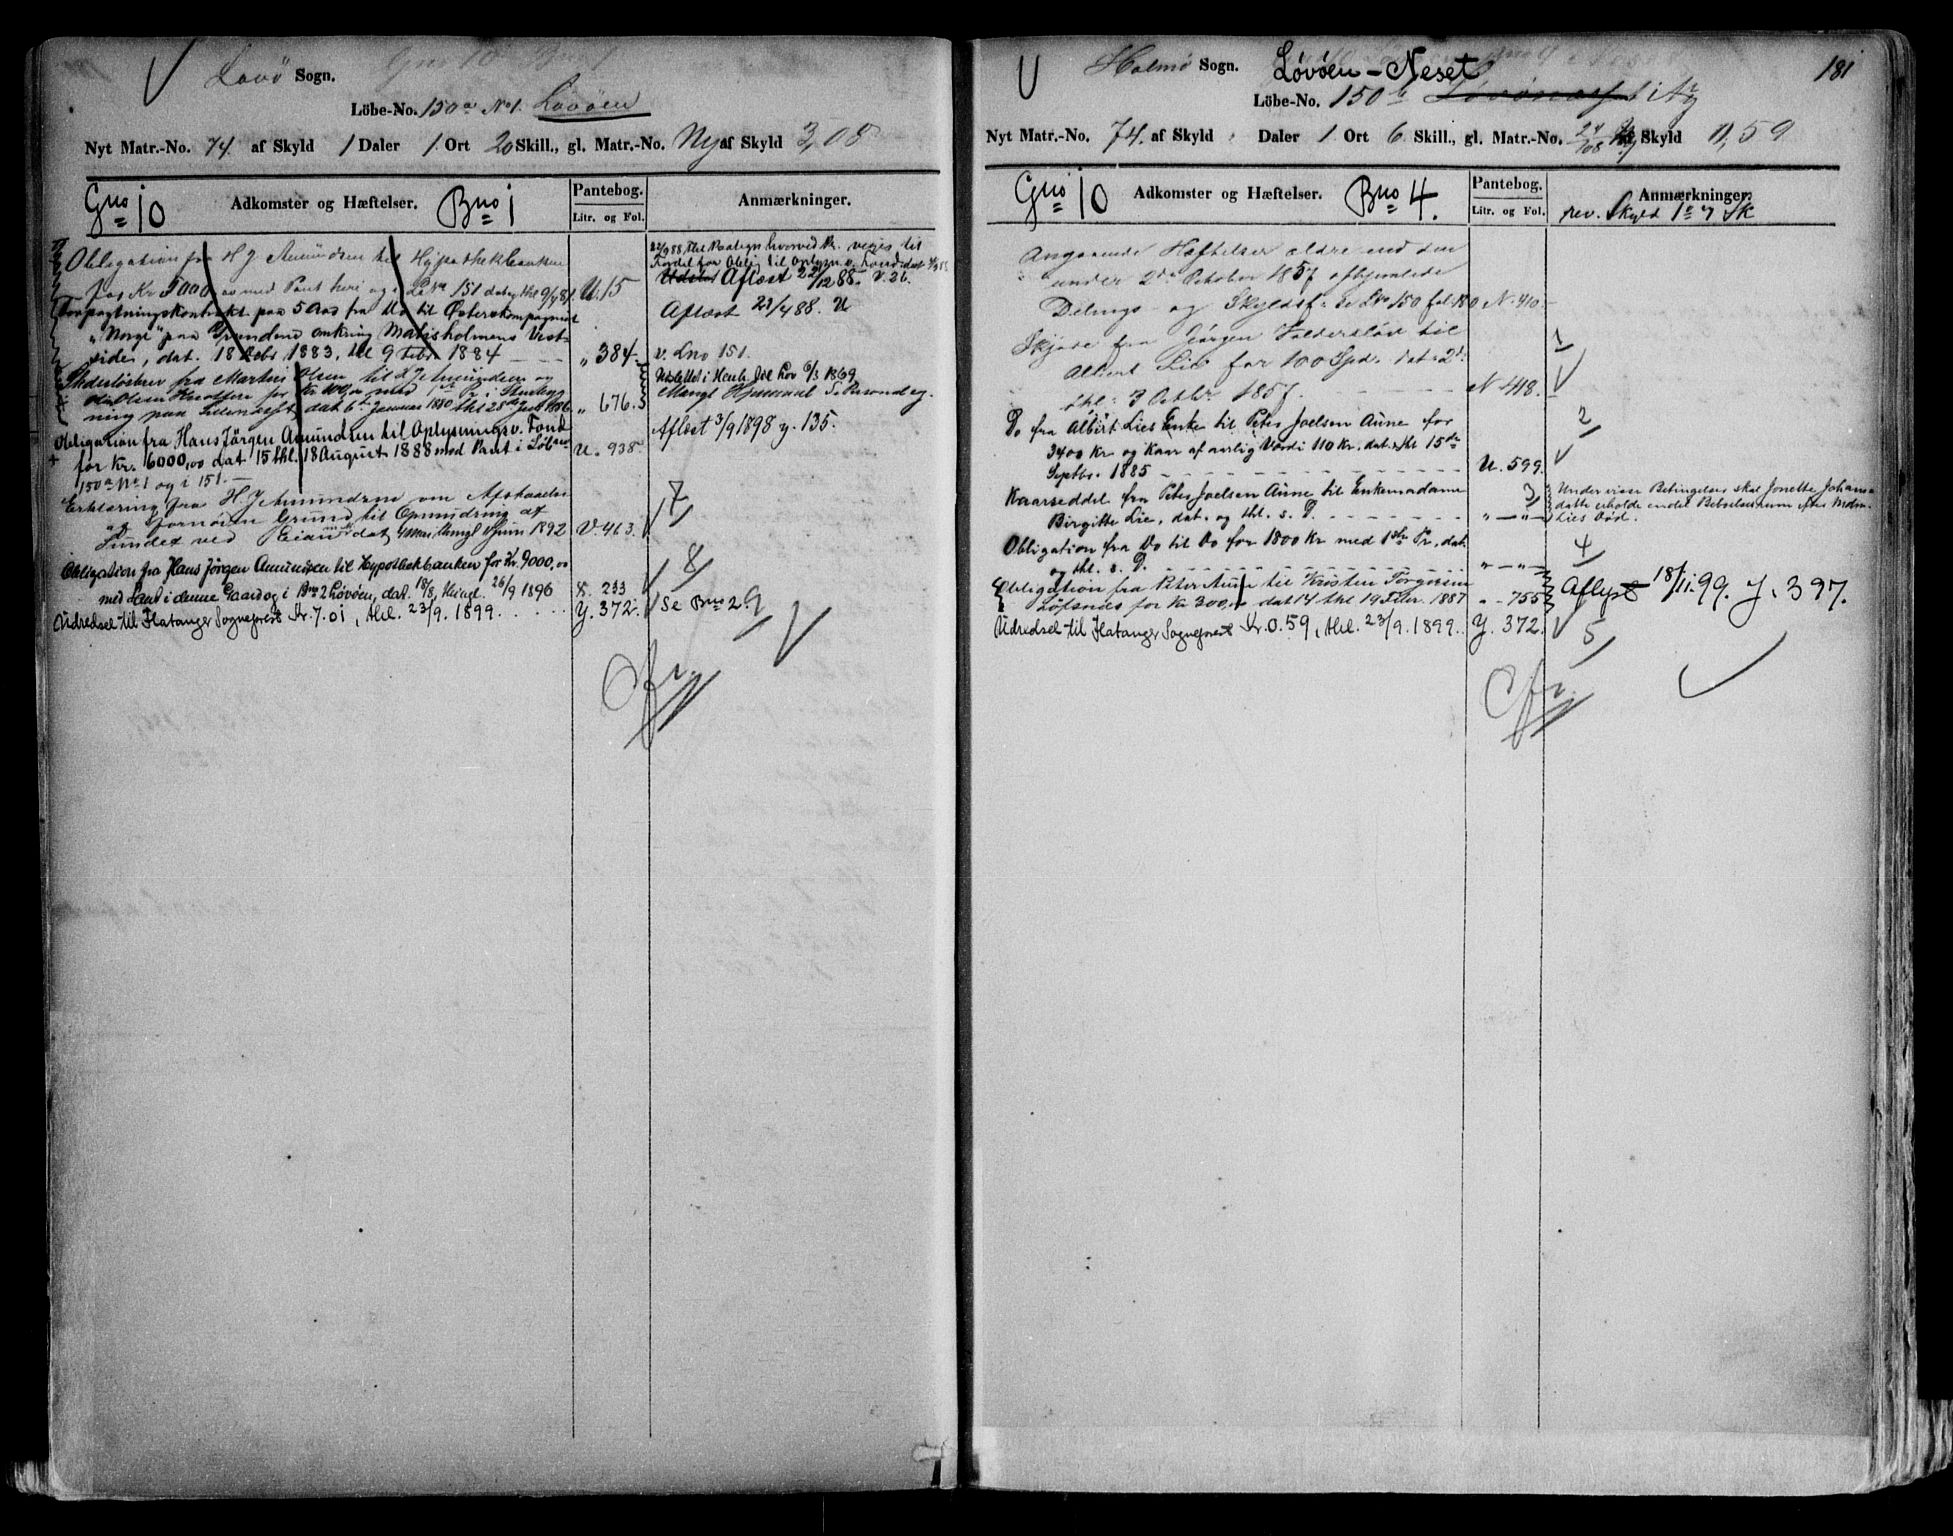 Lovö Sogn.
Löbe-No. 150a No 1. Lövöen
Nyt Matr.-No. 74 af Skyld 1 Daler 1 Ort 20 Skill., gl. Matr.-No. Ny af Skyld 3,08
Gno 10 Adkomster og Hæftelser. Bno 1
Pantebog.
Litr. og Fol.
Anmærkninger.
Obligation fra H J Amundsen til Hypothekbanken
for Kr 5000,00 med Pant heri og i Lno 151 dat thl 9/ 81. U. 15
Forpagtningskontrakt paa 5 Aar fra Do til Österskompagniet
"Norge" paa Grundene omkring Matisholmens Vest-
side, dat. 18 1883, thl 9 Febr 1884 " 384.
fra Martin Olsen til H J Amundsen og
Olsen for Kr 400,00 med 1ste Pr. i
ning paa dat 6te Januar 1880 thl 28de 1886 " 676.
Obligation fra Hans Jörgen Amundsen til Oplysningsv. Fond
for Kr. 6000,00 dat 15 thl. 18 August 1888 med Pant i Löbno U. 938
150a No 1 og i 151. —
Erklæring fra H. J Amundsen om Afstaaelse
af Grund til Opmudring af
Sundet ved dat 4 Mai, thingl Juni 1892 V. 463.
Obligation fra Hans Jörgen Amundsen til Hypothekbanken for Kr. 9000,00
med Pant i denne Gaard og i Bno 2 Lövöen, dat. 18/8, thingl. 26/9 1896 X. 233
Udredsel til Flatanger Sogneprest Kr. 7.01, thl. 23/9. 1899. Y. 372.
Aflæst 22/12 88. V. 26.
Aflæst 21/4 88. U
v. Lno 151.
Udslettet i Henh. til Lov 6/3 1869
Mangl Hjemmel
Aflæst 3/9 1898 Y. 135.
7
8
Se Bno 2 9
Cfr
181
Holmö Sogn. Lövöen - Neset
Löbe-No. 150b
Nyt Matr.-No. 74. af Skyld Daler 1 Ort 6 Skill., gl. Matr.-No. Skyld 0,59
Gno 10 Adkomster og Hæftelser. Bno 4.
Pantebog.
Litr. og Fol.
Anmærkninger.
rev. Skyld 1 7 Sk
Angaaende Hæftelser ældre end den
under 2den October 1857 afhjemlede
Delings- og Skyldsf: se Lno 150 fol 180 N. 410
Skjöde fra Jörgen til
Albert Lie for 100 Spd. dat: 2d
thl: 3 Octbr. 1857. N 418.
Do fra Albert Lies Enke til Peter Joelsen Aune for
3400 Kr. og Kaar af aarlig Værdi 110 Kr. dat. & thl 15de
Septbr. 1885 U. 599.
Kaarseddel fra Peter Joelsen Aune til Enkemadame
Birgitte Lie, dat. og thl. s. D. " — " —
Obligation fra Do til Do for 1800 Kr med 1ste Pr, dat.
og thl. s. D. " — " —
Obligation fra Peter Aune til Kristen Torgersen
Löfsnes for Kr 300,00 dat 14 thl 19 Febr. 1887 " - 755
Udredsel til Flatanger Sogneprest Kr. 0.59, thl. 23/9. 1899. Y. 372.
1
2
3 Under visse Betingelser skal Jonette Johans-
datter erholde endel Beboelsesrum efter Mdm.
Lies Död.
4
Aflyst 18/11. 99. Y. 397.
5
Cfr